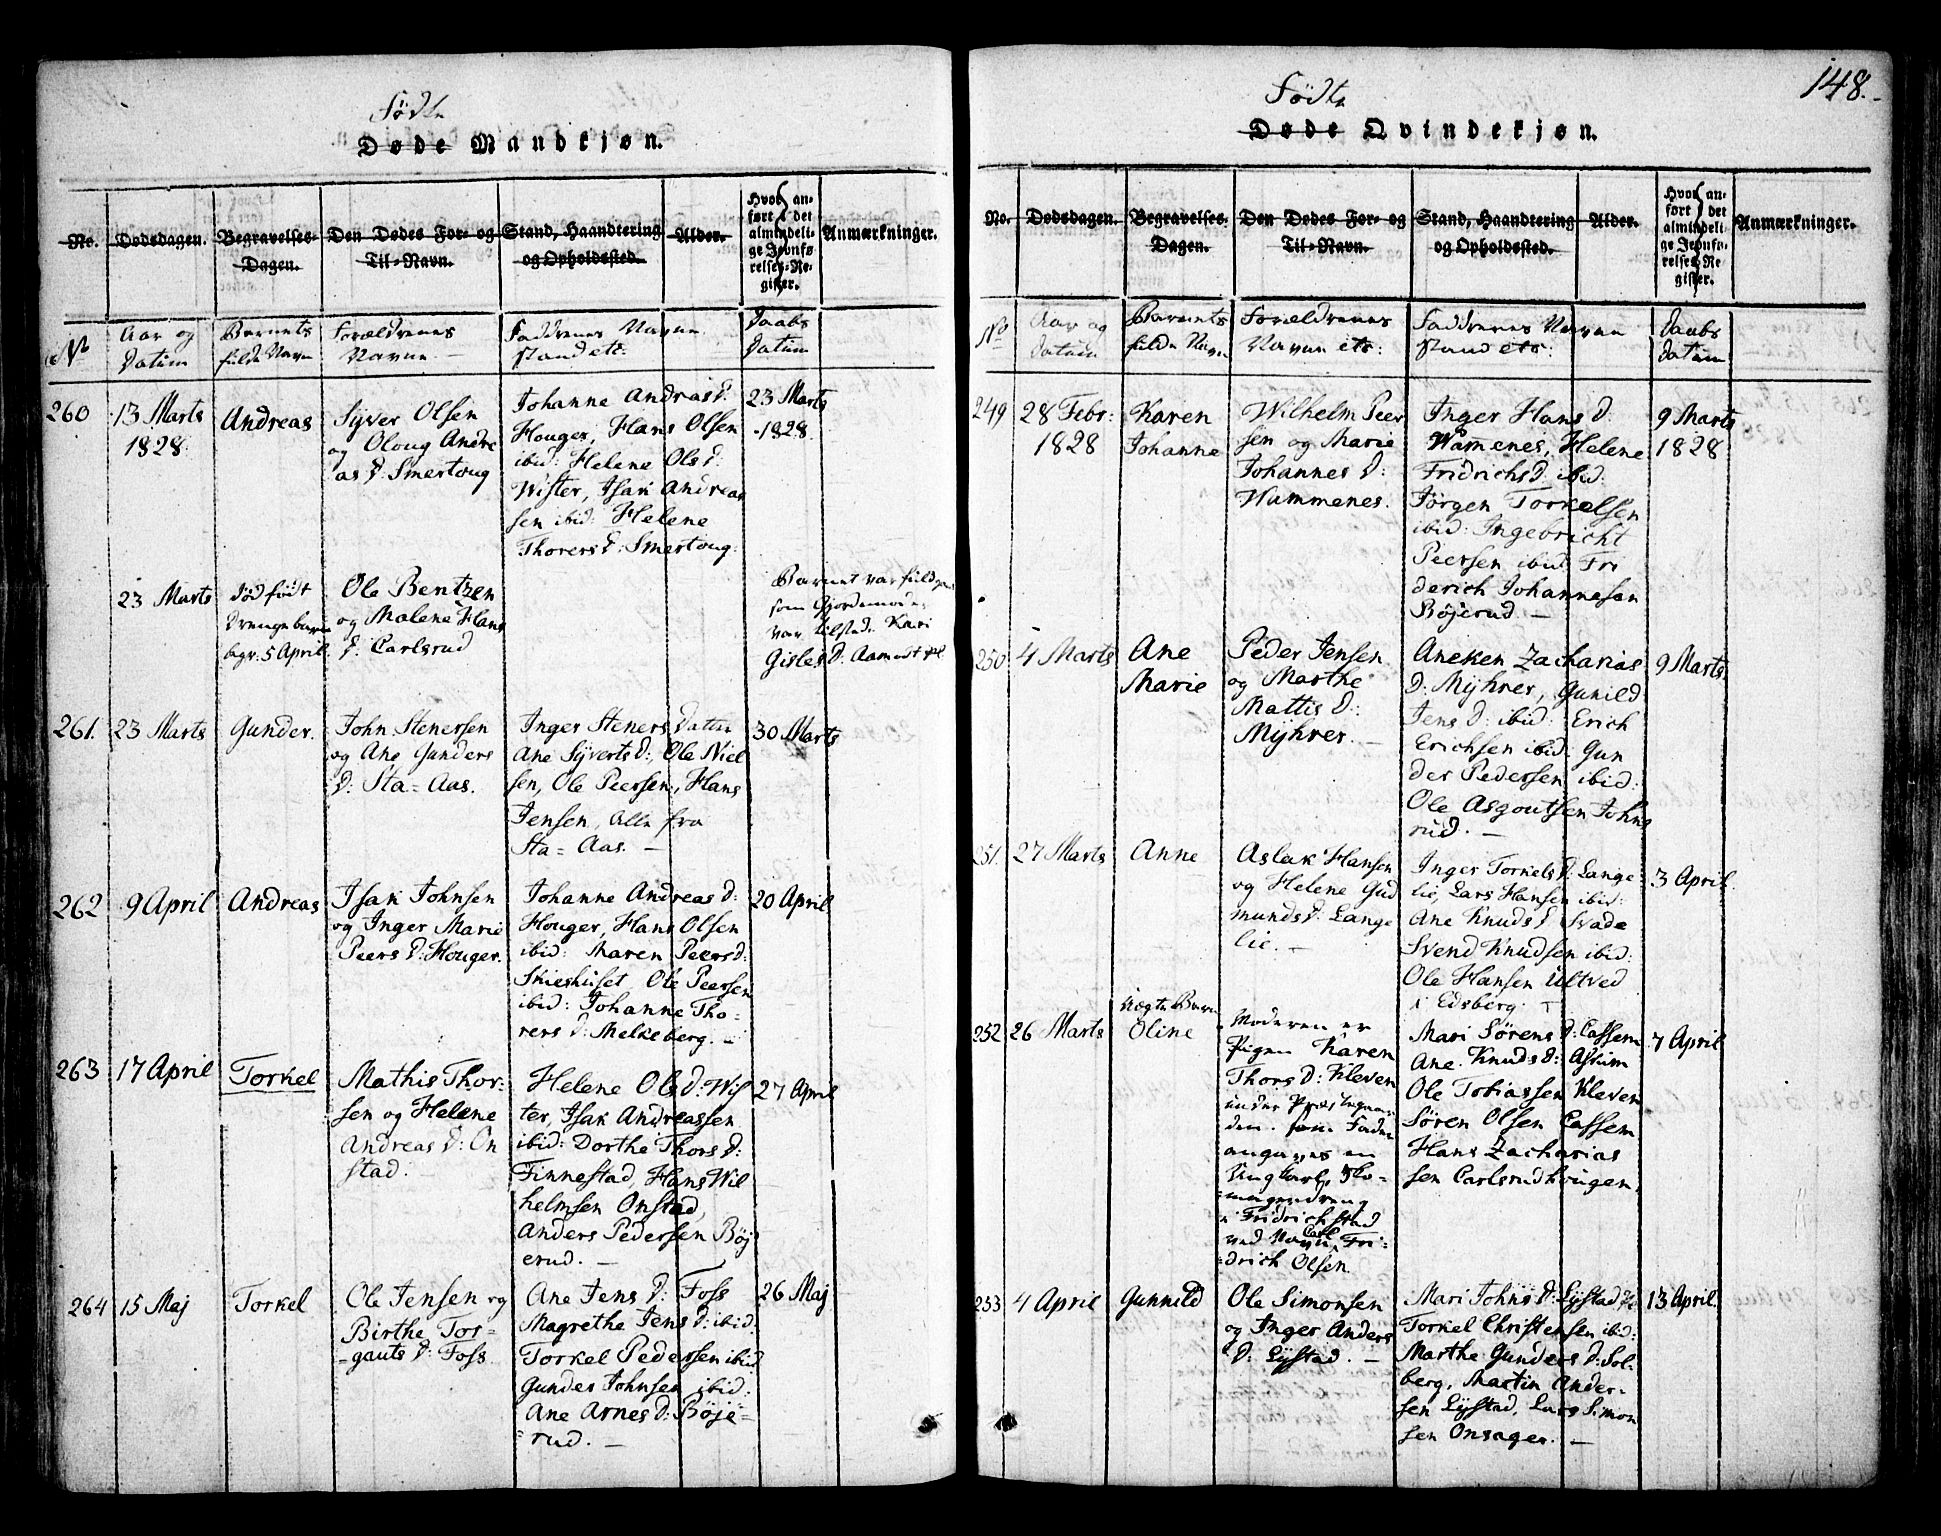 Födte
Døde Mandkjøn.
No.
Dødsdagen.
Begravelses-
Dagen.
Den Dødes For- og
Til-Navn.
Stand, Haandtering
og Opholdssted.
Alder.
Hvor an-
ført i det
almindeli-
ge Jevnfø-
relses-Re-
gister.
Anmærkninger.
No
Aar og
Datum
Barnets
fulde Navn
Forældrenes
Navne
Faddrenes Navne
stand etc:
Daabs
Datum
260
13 Marts
1828
Andreas
Syver Olsen
og Oloug Andre
as D: Smertoug
Johanne Andreas D:
Houger, Hans Olsen
ibid: Helene Ols D:
Wister, Isak Andreas
sen ibid: Helene
Thorers D: Smertoug.
23 Marts
1828.
23 Marts
dödfödt
Drengebarn
begr. 5 April.
Ole Bentzen
og Malene Hans
D: Carlsrud
Barnet var
som Gjordemoder
var tilsted. Kari
Gisles D:
261.
23 Marts
Gunder.
John Stenersen
og Ane Gunders
D: Sta=Aas.
Inger Steners Datter
Ane Syverts D:, Ole Niel
sen, Ole Peersen, Hans
Jensen, alle fra
Sta=Aas. —
30 Marts
262
9 April
Andreas
Isak Johnsen
og Inger Marie
Peers D: Houger.
Johanne Andreas D:
Houger, Hans Olsen
ibid: Maren Peers D:
Skieshuset, Ole Peersen
ibid: Johanne Tho-
rers D: Melkeberg. —
20 April
263
17 April
Torkel
Mathis Thor-
sen og Helene
Andreas D: On
stad.
Helene Ols D: Wis
ter, Isak Andreassen
ibid: Dorthe Thors D:
Finnestad, Hans Wil
helmsen Onstad,
Anders Pedersen Böj
erud. —
27 April
264
15 Maj
Torkel
Ole Jensen og
Birthe Tor-
gauts D: Foss
Ane Jens D: Foss
Magrethe Jens D: ibid:
Torkel Pedersen ibid
Gunder Johnsen ibid:
Ane Arnes D: Böje-
rud. —
26 Maj
148.
Födte
Døde Qvindekjøn.
No.
Dødsdagen.
Begravelses-
Dagen.
Den Dødes For- og
Til-Navn.
Stand, Haandtering
og Opholdssted.
Alder.
Hvor an-
ført i det
almindeli-
ge Jevnfø-
relses-Re-
gister.
Anmærkninger.
No
Aar og
Datum
Barnets
fulde Navn
Forældrenes
Navne etc:
Faddrenes Navne
stand etc:
Daabs
Datum
249
28 Febr:
1828
Karen
Johanne
Wilhelm Peer
sen og Marie
Johannes D:
Wammenes.
Inger Hans D:
Wammenes, Helene
Fridrichs D: ibid:
Jörgen Torkelsen
ibid: Ingebricht
Peersen ibid: Fri
derich Johannesen
Böjerud —
9 Marts
1828
250
4 Marts
Ane
Marie
Peder Jensen
og Marthe
Mattis D:
Myhrer. —
Aneken Zacharias
D: Myhrer, Gunild
Jens D: ibid: Erich
Erichsen ibid: Gun
der Pedersen ibid:
Ole Asgoutsen Johns
rud. —
9 Marts
251.
27 Marts
Anne
Aslak Hansen
og Helene Gud
munds D: Lange
lie. —
Inger Torkels D: Lange
lie, Lars Hansen ibid:
Ane Knuds D: Svade
Svend Knudsen ibid:
Ole Hansen Ultved
i Edsberg. —
3 April
252
26 Marts
Uægte Barn
Oline
Moderen er
Pigen Karen
Thors D: Kleven
under Præstegjæl-
den. som Fader
angaves en
Ungkarl,
i Fridrichstad
ved Navn Carl Fri-
drich Olsen
Mari Sörens D: Cassem
Ane Knuds D: Askim
Ole Tobiassen Kleven
Sören Olsen Cassem
Hans Zacharias
sen Carlsrudhougen.
7 April
253
4 April
Gunnild
Ole Simonsen
og Inger Anders
D: Lystad. —
Mari Johns D: Lystad
Torkel Christensen ibid:
Marthe Gunders D: Sol-
berg, Martin Ander-
sen Lystad, Lars Simon
sen Onsager. —
13 April.